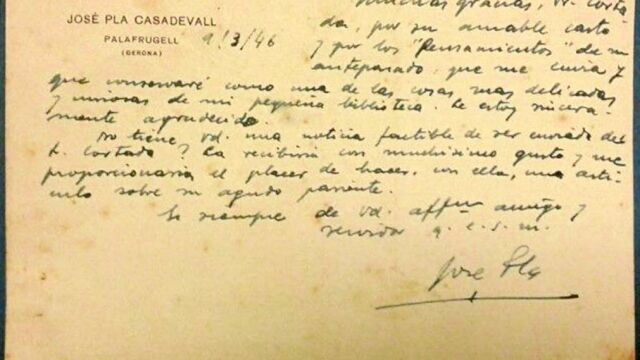 JOSÉ PLA CASADEVALL
PALAFRUGELL
(GERONA)
9/3/46
Muchas gracias, Sr. Corta-
da, por su amable carta
y por los "Pensamientos" de su
antepasado, que me envía y
que conservaré como una de las cosas mas delicadas
y curiosas de mi pequeña biblioteca. Le estoy sincera-
mente agradecido.
No tiene Vd. una noticia factible de ser enviada del
Sr. Cortada? La recibiría con muchísimo gusto y me
proporcionaría el placer de hacer, con ella, una artí-
culo sobre su agudo pariente.
Su siempre de Vd. affmo amigo y
servidor q. e. s. m.
José Pla